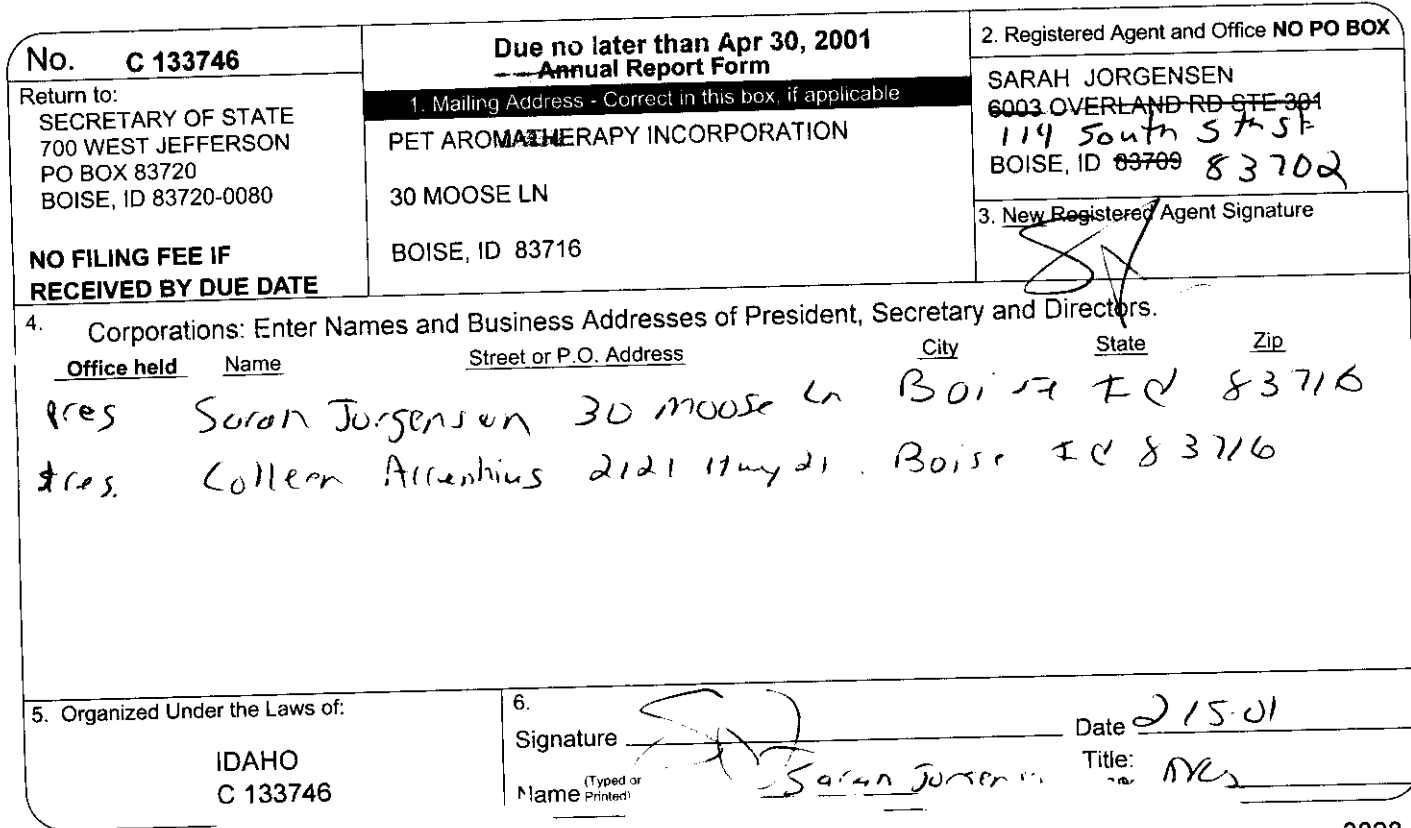 No. C 133746
Return to:
SECRETARY OF STATE
700 WEST JEFFERSON
PO BOX 83720
BOISE, ID 83720-0080
NO FILING FEE IF
RECEIVED BY DUE DATE
Due no later than Apr 30, 2001
Annual Report Form
1. Mailing Address - Correct in this box, if applicable
PET AROMATHERAPY INCORPORATION
30 MOOSE LN
BOISE, ID 83716
2. Registered Agent and Office NO PO BOX
SARAH JORGENSEN
6003 OVERLAND RD STE 301
114 South 5th St
BOISE, ID 83709 83702
3. New Registered Agent Signature
4. Corporations: Enter Names and Business Addresses of President, Secretary and Directors.
Office held Name Street or P.O. Address City State Zip
Pres Sarah Jorgensen 30 Moose Ln Boise Id 83716
tres. Colleen 2121 Hwy 21. Boise Id 83716
5. Organized Under the Laws of:
IDAHO
C 133746
6.
Signature
Date 2 15.01
Name (Typed or Printed) Sarah Jorgensen
Title: Pres